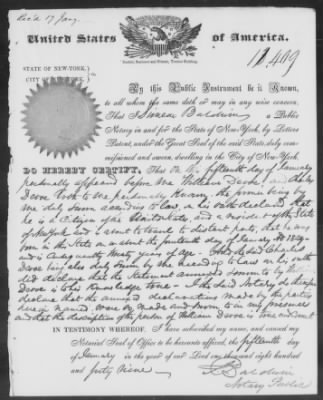 Rec'd 17 Jany.
United States of America.
11,409
STATE OF NEW-YORK,
CITY OF NEW-YORK,
By this Public Instrument be it Known,
to all whom the same doth or may in any wise concern.
That I Simeon Baldwin a Public
Notary in and for the State of New-York, by Letters
Patent, under the Great Seal of the said State, duly com-
missioned and sworn, dwelling in the City of New-York
DO HEREBY CERTIFY, That on the fifteenth day of January
personally appeared before me William Dove
to me personally known, who being by
me duly sworn according to law, on his oath declared that
he is a Citizen of the United States, and a resident of the State
of New York and is about to travel to distant parts, that he was
born in the State on or about the fourteenth day of January
and is consequently twenty years of age. And the said Charles
Dove being also duly sworn by me according to law on his oath
did declare that the statement
Dove is to his Knowledge true. I the said Notary do therefore
declare that the annexed declarations made by the parties
herein named were by made and sworn to in my presence
and that the description of the person of William Dove is
IN TESTIMONY WHEREOF, I have subscribed my name, and caused my
Notarial Seal of Office to be hereunto affixed, the fifteenth day
of January in the year of our Lord one thousand eight hundred
and forty Nine
S. Baldwin
Notary Public